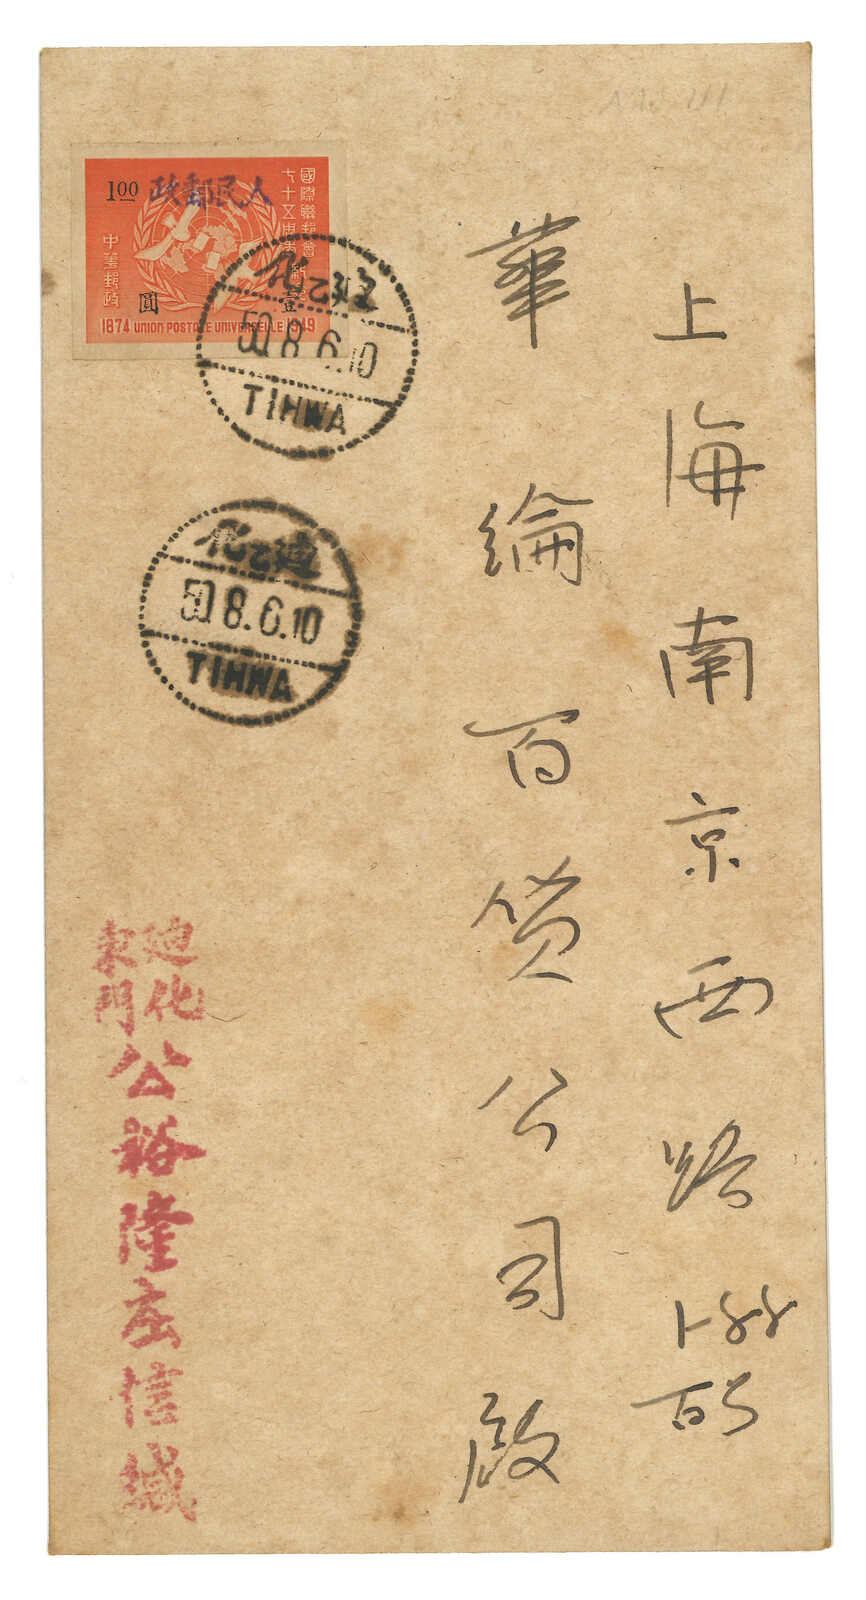 上海南京西路
華綸百貨公司啟
人民郵政
1.00
國際聯郵會
七十五周
壹
圓
中華郵政
1874 UNION POSTALE UNIVERSELLE 1949
迪乙化
50.8.6.10
TIHWA
迪乙化
50.8.6.10
TIHWA
迪化
東門
公裕隆庄信緘